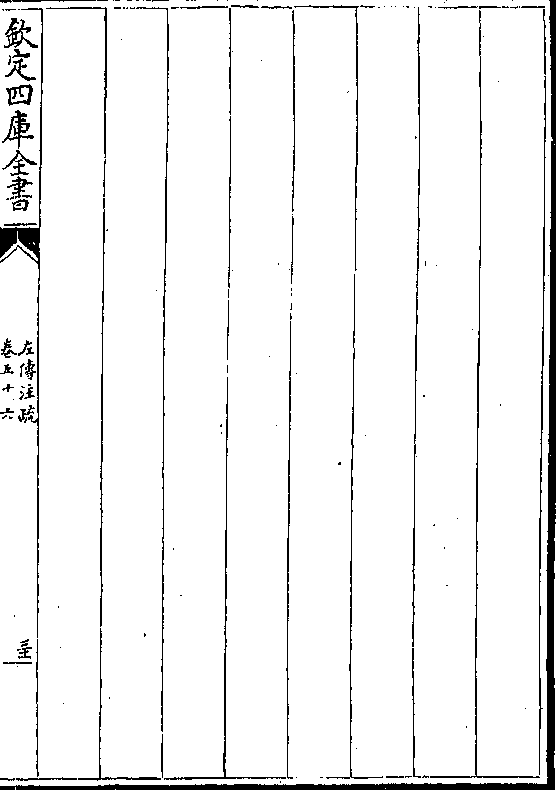 欽定四庫全書
左傳注疏
卷五十六